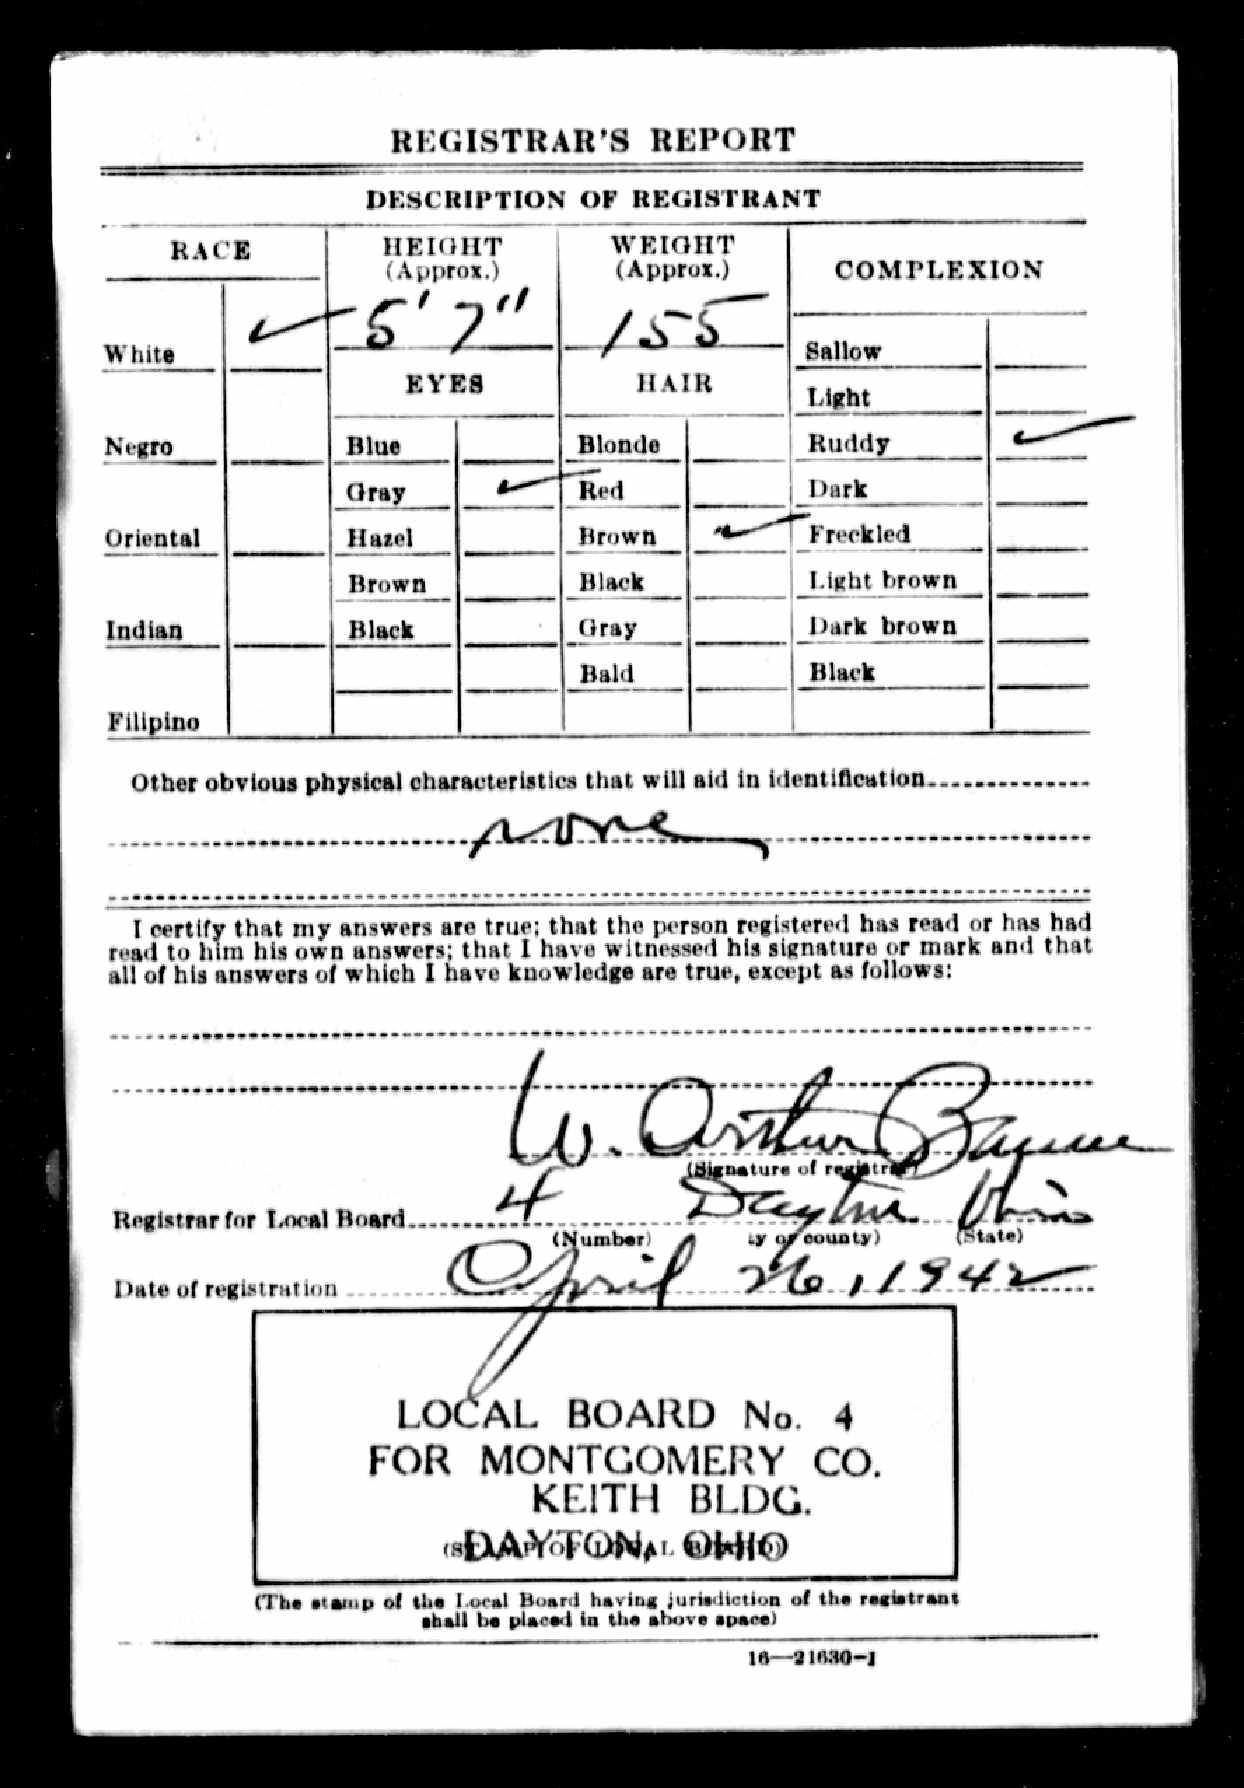 REGISTRAR'S REPORT
DESCRIPTION OF REGISTRANT
RACE HEIGHT (Approx.) WEIGHT (Approx.) COMPLEXION
5' 7" 155
White ✓ Sallow
EYES HAIR Light
Negro Blue Blonde Ruddy ✓
Gray ✓ Red Dark
Oriental Hazel Brown ✓ Freckled
Brown Black Light brown
Indian Black Gray Dark brown
Bald Black
Filipino
Other obvious physical characteristics that will aid in identification
none
I certify that my answers are true; that the person registered has read or has had
read to him his own answers; that I have witnessed his signature or mark and that
all of his answers of which I have knowledge are true, except as follows:
W. Arthur
(Signature of registrar)
Registrar for Local Board 4 Dayton Ohio
(Number) (City or county) (State)
Date of registration April 26, 1942
LOCAL BOARD No. 4
FOR MONTGOMERY CO.
KEITH BLDG.
DAYTON, OHIO
(STAMP OF LOCAL BOARD)
(The stamp of the Local Board having jurisdiction of the registrant
shall be placed in the above space)
16—21630-1